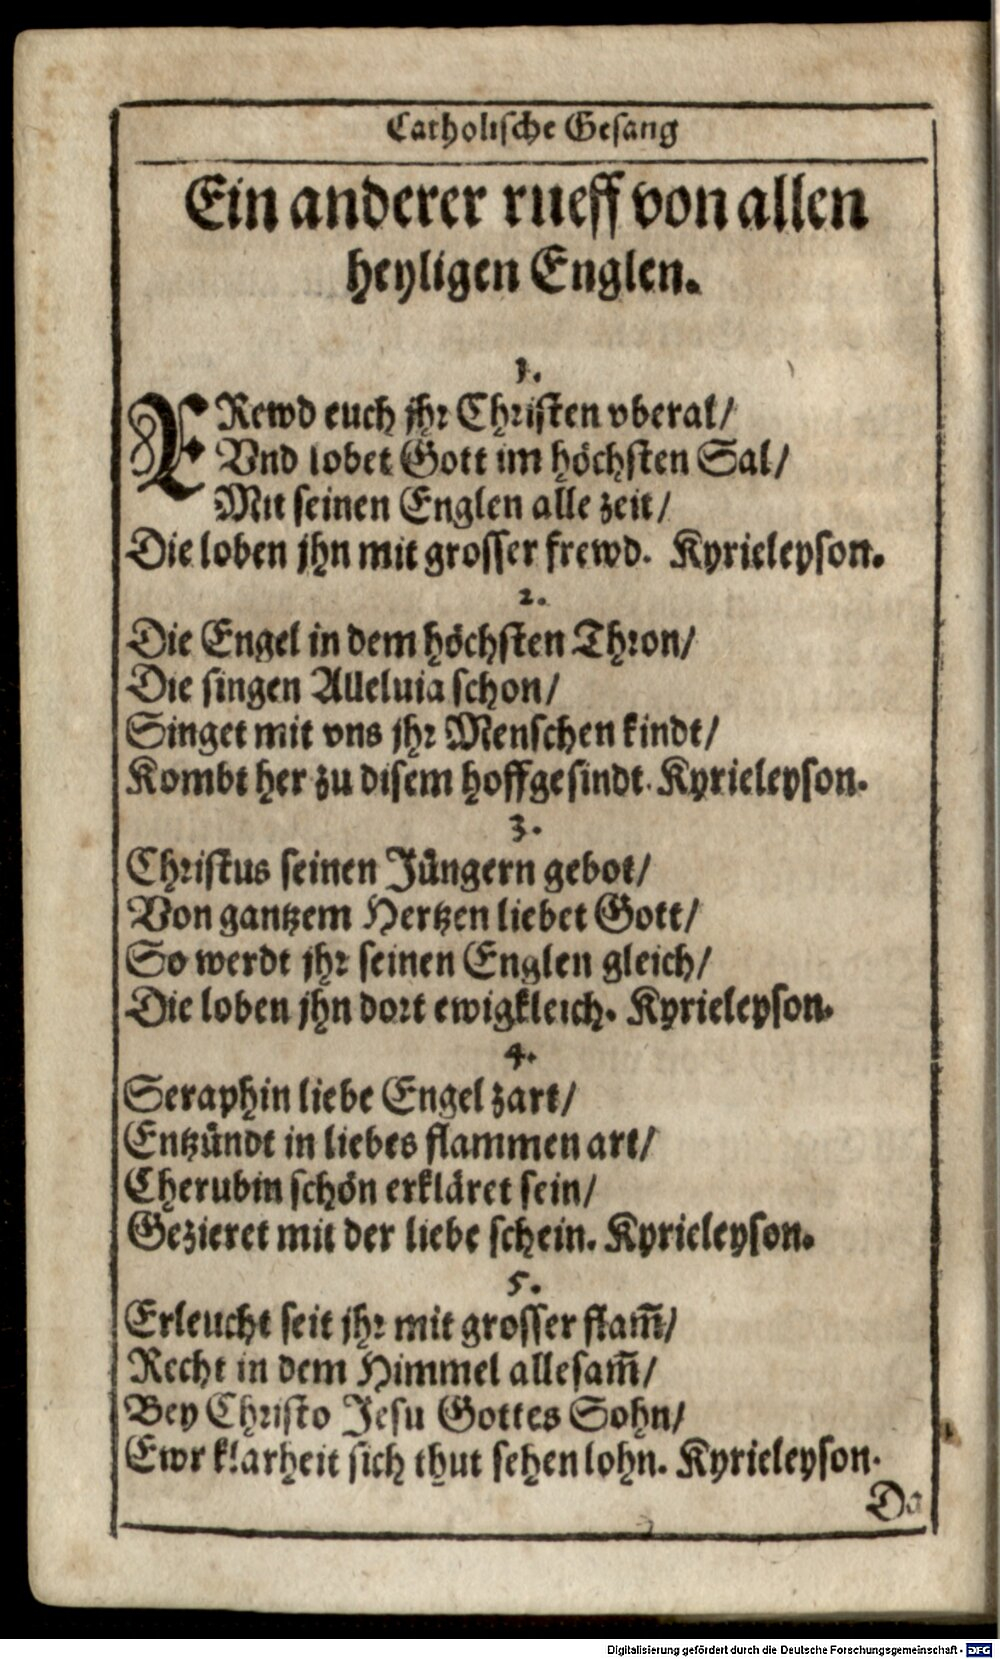 Catholische Gesang
Ein anderer rueff von allen
heyligen Englen.
1.
FRewd euch jhr Christen vberal/
Vnd lobet Gott im höchsten Sal/
Mit seinen Englen alle zeit/
Die loben jhn mit grosser frewd. Kyrieleyson.
2.
Die Engel in dem höchsten Thron/
Die singen Alleluia schon/
Singet mit vns jhr Menschen kindt/
Kombt her zu disem hoffgesindt. Kyrieleyson.
3.
Christus seinen Jüngern gebot/
Von gantzem Hertzen liebet Gott/
So werdt jhr seinen Englen gleich/
Die loben jhn dort ewigkleich. Kyrieleyson.
4.
Seraphin liebe Engel zart/
Entzündt in liebes flammen art/
Cherubin schön erkläret sein/
Gezieret mit der liebe schein. Kyrieleyson.
5.
Erleucht seit jhr mit grosser flam̄/
Recht in dem Himmel allesam̄/
Bey Christo Jesu Gottes Sohn/
Ewr klarheit sich thut sehen lohn. Kyrieleyson.
Da
Digitalisierung gefördert durch die Deutsche Forschungsgemeinschaft - DFG